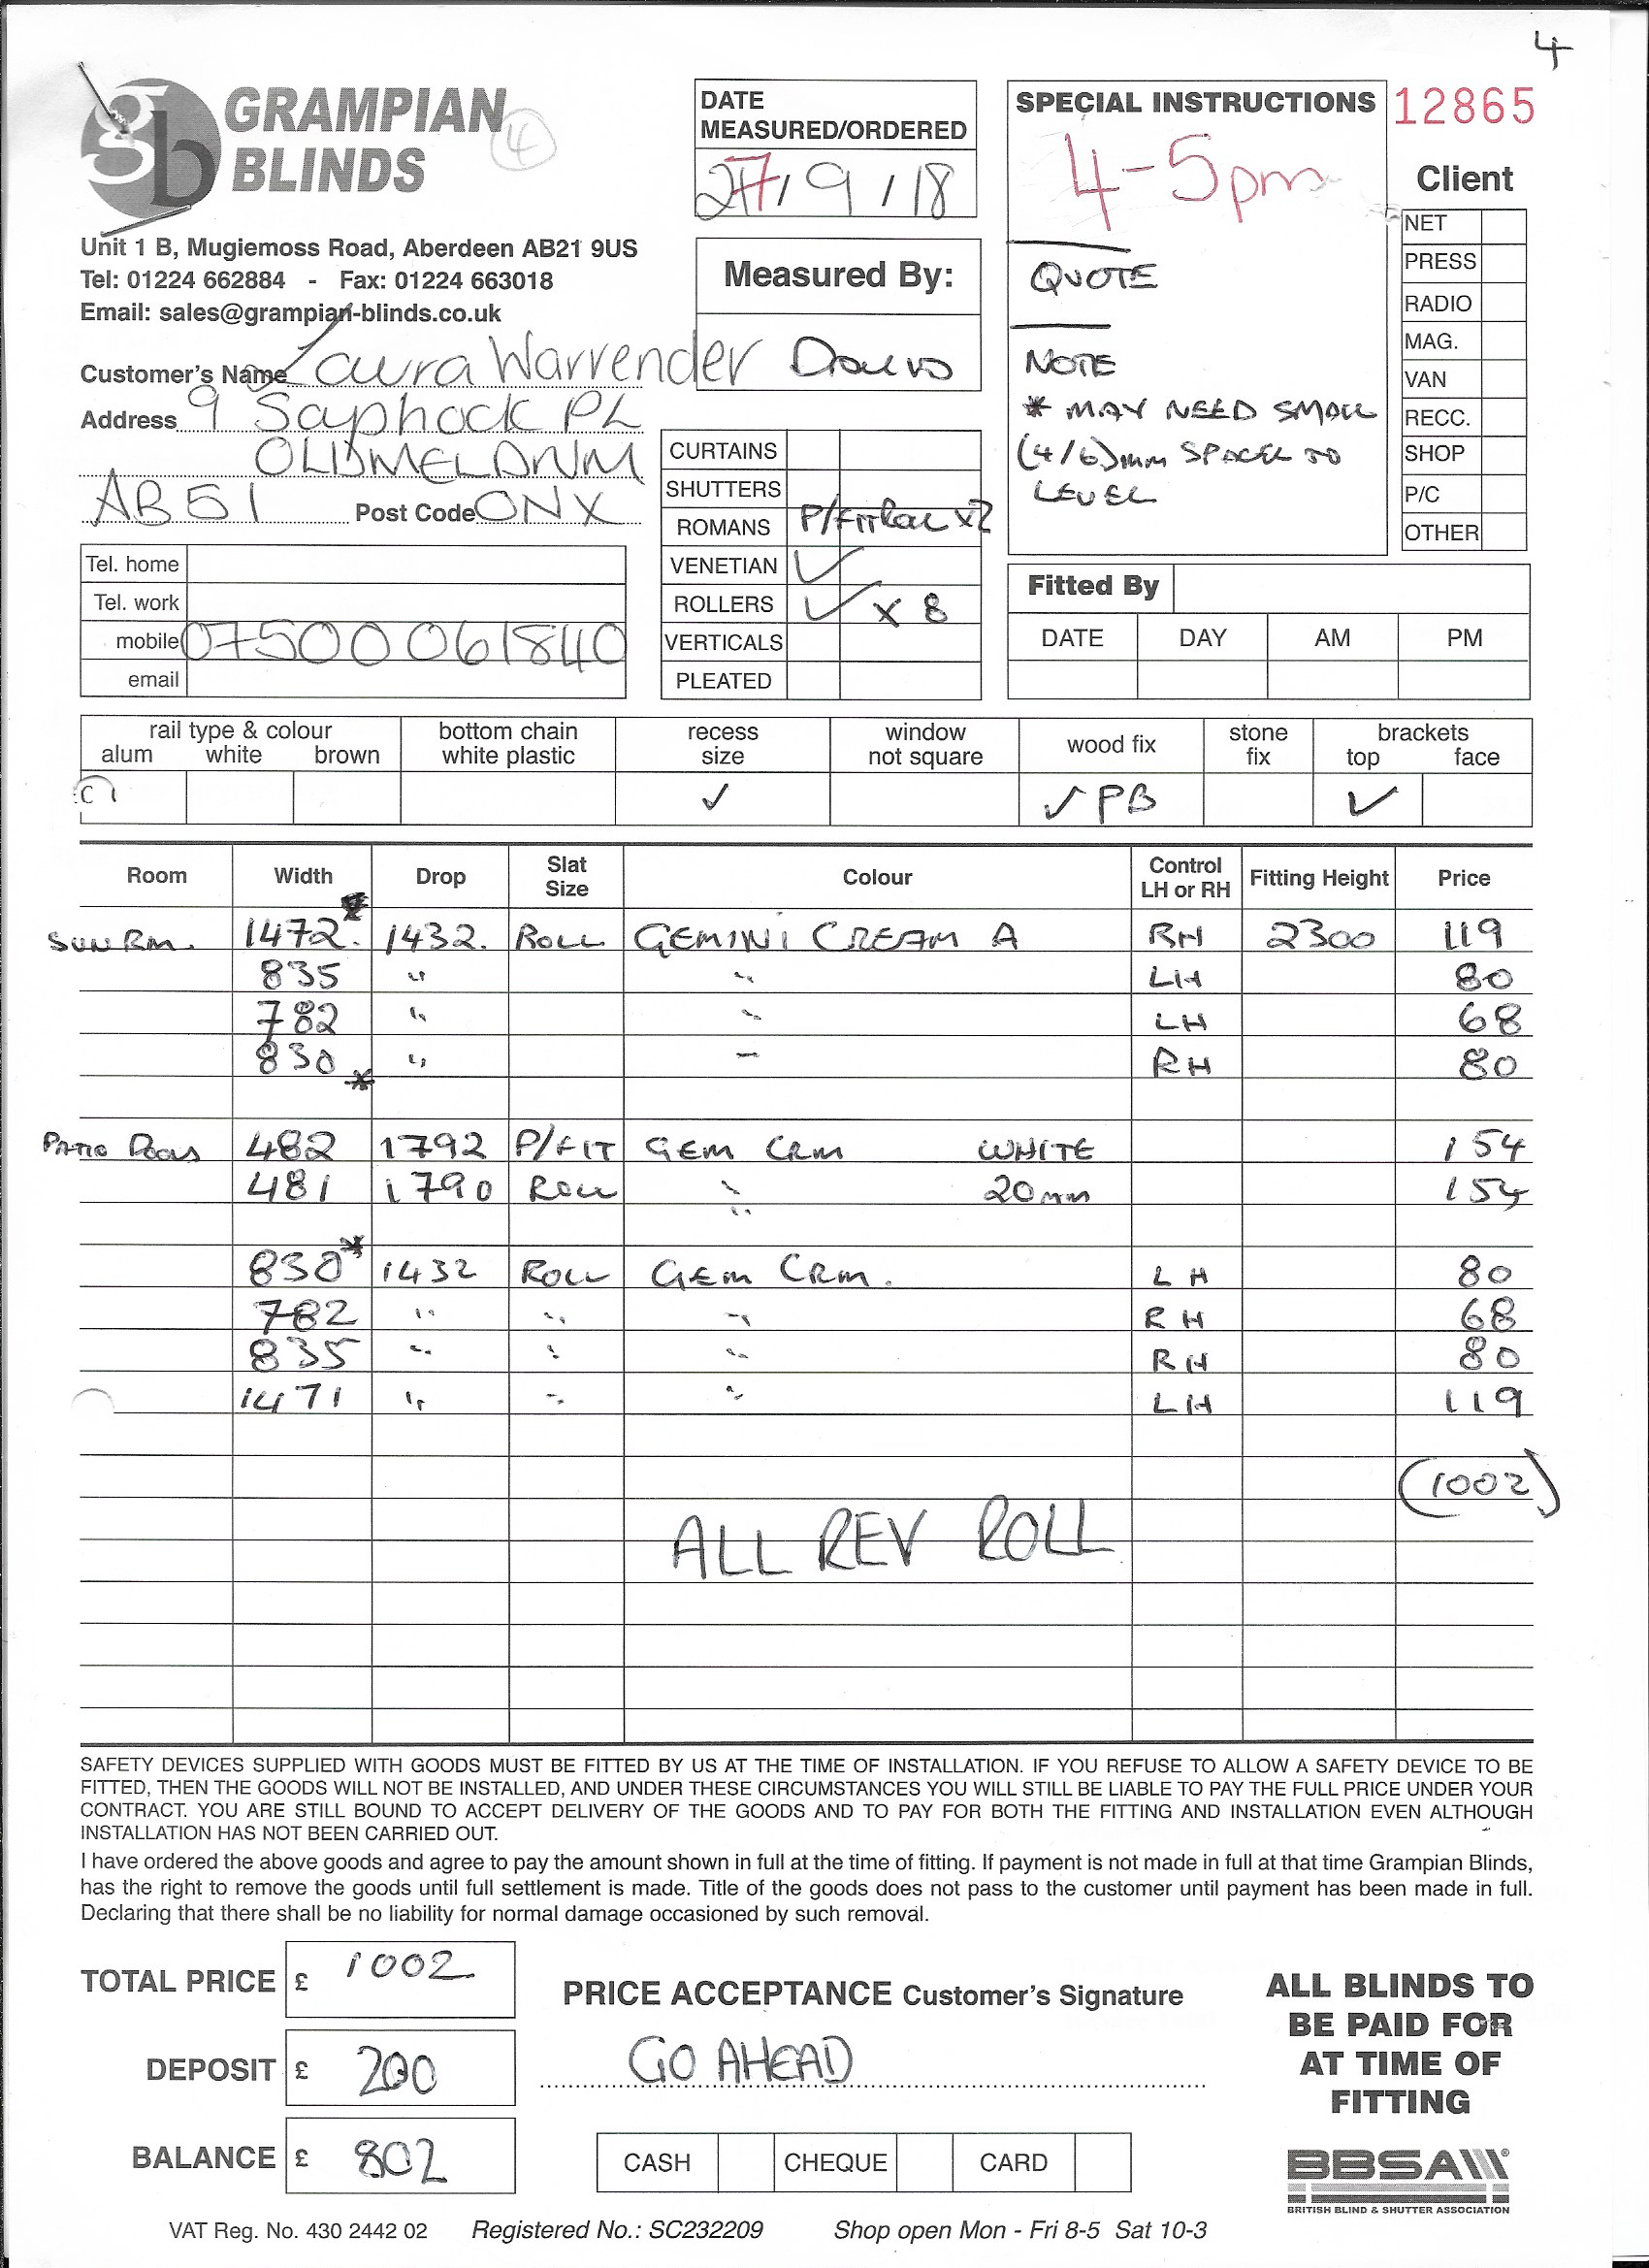 4
GRAMPIAN
BLINDS
4
gb
Unit 1 B, Mugiemoss Road, Aberdeen AB21 9US
Tel: 01224 662884 - Fax: 01224 663018
Email: sales@grampian-blinds.co.uk
DATE
MEASURED/ORDERED
27/9/18
Measured By:
SPECIAL INSTRUCTIONS
4-5pm
QUOTE
NOTE
* MAY NEED SMALL
(4/6)mm SPACER TO
LEVEL
12865
Client
NET
PRESS
RADIO
MAG.
VAN
RECC.
SHOP
P/C
OTHER
Customer's Name Laura Warrender
Address 9 Saphock PL
OLDMELDRUM
AB51 Post Code 0NX
Tel. home
Tel. work
mobile 07500 061840
email
CURTAINS
SHUTTERS
ROMANS P/FIT Roll x2
VENETIAN ✓
ROLLERS ✓ x 8
VERTICALS
PLEATED
Fitted By
DATE DAY AM PM
rail type & colour
alum white brown
bottom chain
white plastic
recess
size
window
not square
wood fix
stone
fix
brackets
top face
✓ ✓ PB ✓
Room Width Drop Slat Size Colour Control LH or RH Fitting Height Price
SUN RM. 1472* 1432. ROLL GEMINI CREAM A RH 2300 119
835 " " LH 80
782 " " LH 68
830* " " RH 80
PATIO DOORS 482 1792 P/FIT GEM CRM WHITE 154
481 1790 ROLL " 20mm 154
830* 1432 ROLL GEM CRM. LH 80
782 " " " RH 68
835 " " " RH 80
1471 " " " LH 119
(1002)
ALL REV ROLL
SAFETY DEVICES SUPPLIED WITH GOODS MUST BE FITTED BY US AT THE TIME OF INSTALLATION. IF YOU REFUSE TO ALLOW A SAFETY DEVICE TO BE
FITTED, THEN THE GOODS WILL NOT BE INSTALLED, AND UNDER THESE CIRCUMSTANCES YOU WILL STILL BE LIABLE TO PAY THE FULL PRICE UNDER YOUR
CONTRACT. YOU ARE STILL BOUND TO ACCEPT DELIVERY OF THE GOODS AND TO PAY FOR BOTH THE FITTING AND INSTALLATION EVEN ALTHOUGH
INSTALLATION HAS NOT BEEN CARRIED OUT.
I have ordered the above goods and agree to pay the amount shown in full at the time of fitting. If payment is not made in full at that time Grampian Blinds,
has the right to remove the goods until full settlement is made. Title of the goods does not pass to the customer until payment has been made in full.
Declaring that there shall be no liability for normal damage occasioned by such removal.
TOTAL PRICE £ 1002
DEPOSIT £ 200
BALANCE £ 802
PRICE ACCEPTANCE Customer's Signature
GO AHEAD
CASH CHEQUE CARD
ALL BLINDS TO
BE PAID FOR
AT TIME OF
FITTING
BBSA
BRITISH BLIND & SHUTTER ASSOCIATION
VAT Reg. No. 430 2442 02 Registered No.: SC232209 Shop open Mon - Fri 8-5 Sat 10-3